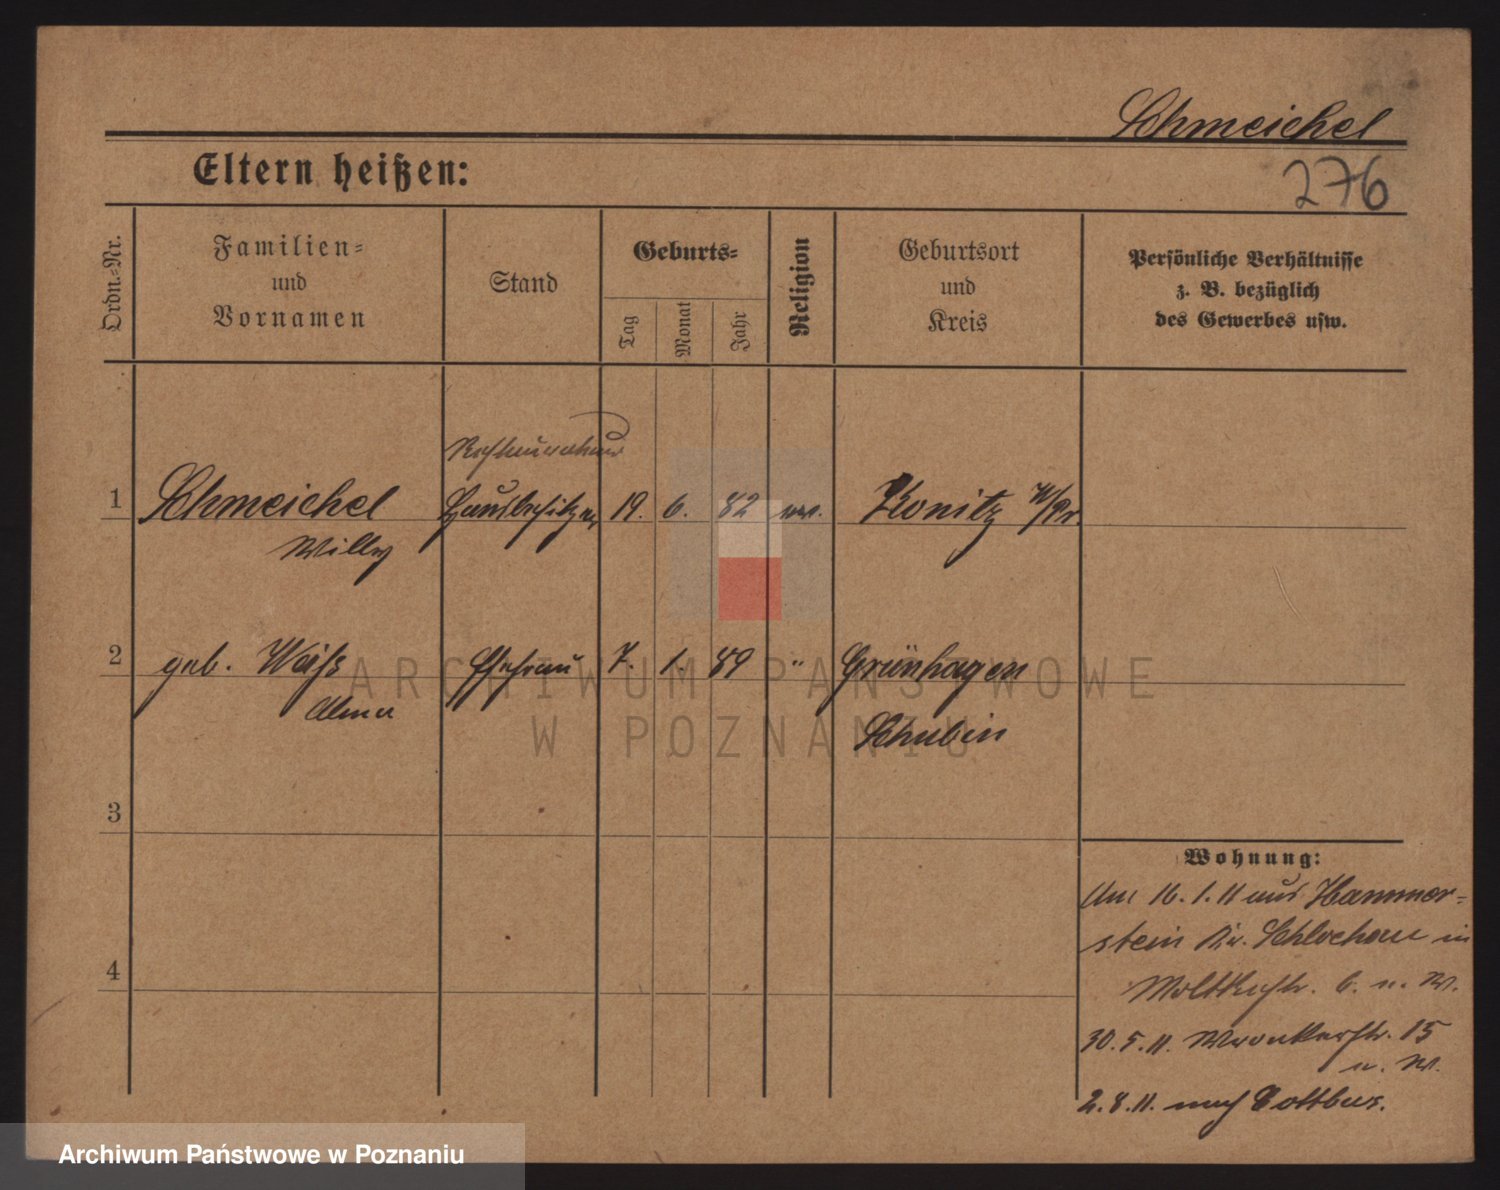 Schmeichel
Eltern heißen:
276
Ordn.-Nr.
Familien-
und
Vornamen
Stand
Geburts-
Tag
Monat
Jahr
Religion
Geburtsort
und
Kreis
Persönliche Verhältnisse
z. B. bezüglich
des Gewerbes usw.
Restaurateur
1 Schmeichel Hausbesitzer 19. 6. 82 ev. Konitz W/Pr.
Willy
2 geb. Weiß Ehefrau 7. 1. 89 " Grünhagen
Alma Schubin
3
4
Wohnung:
Am 16.1.11 aus Hammer-
stein Kr. Schlochau in
Moltkestr. 6. n. W.
30.5.11. Wronkerstr. 15
n. W.
2.8.11. nach Cottbus.
ARCHIWUM PAŃSTWOWE
W POZNANIU
Archiwum Państwowe w Poznaniu